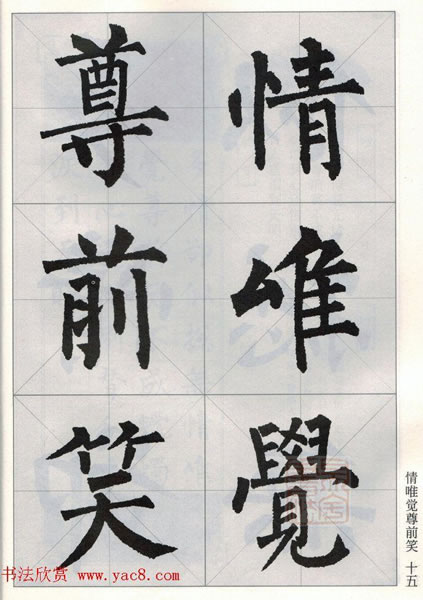 情唯覺
尊前笑
情唯觉尊前笑 十五
书法欣赏 www.yac8.com